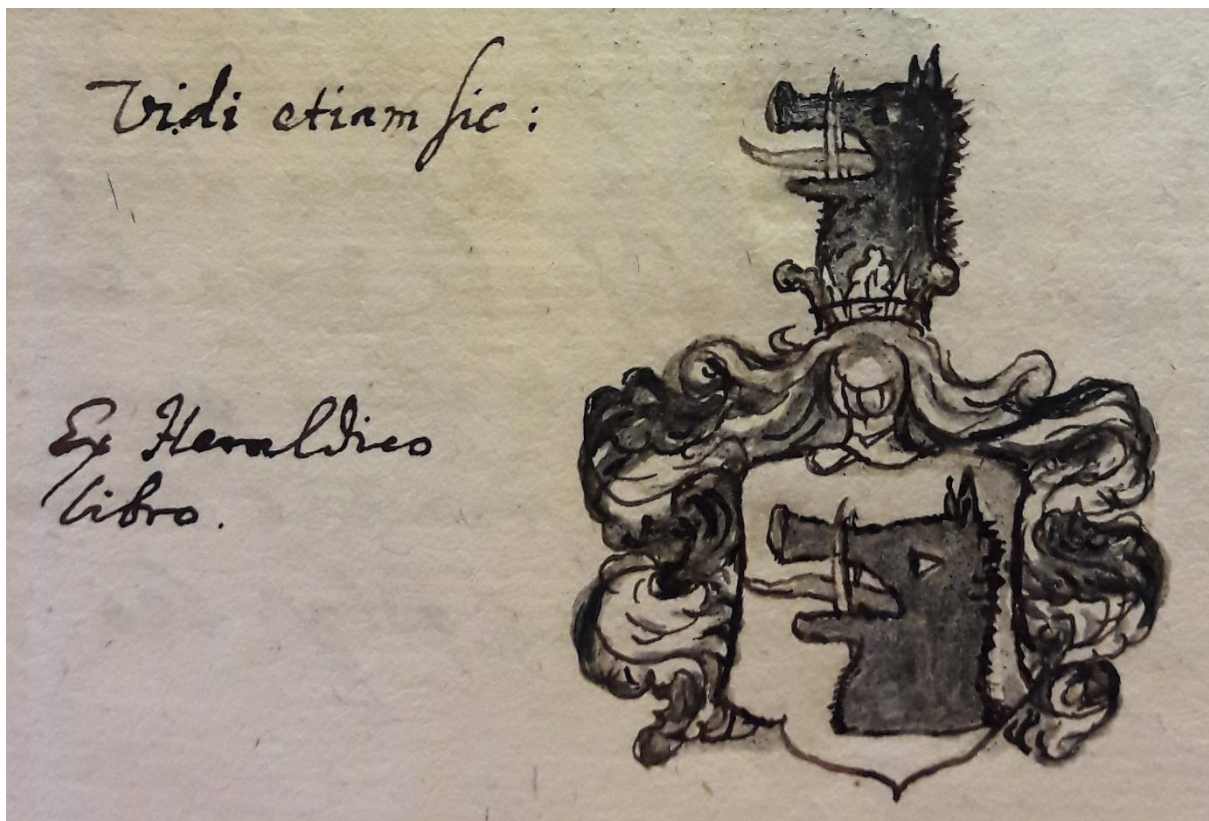 Vidi etiam sic :
Ex Heraldico
libro.